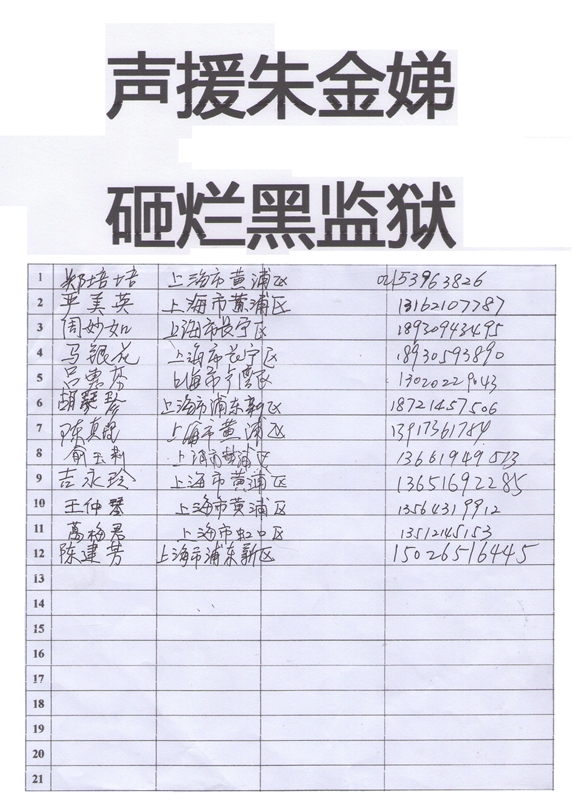 声援朱金娣
砸烂黑监狱
1 郑培培 上海市黄浦区 02153963826
2 严美英 上海市黄浦区 13162107787
3 周妙如 上海市长宁区 18930943495
4 马银花 上海市长宁区 18930593890
5 吕惠芬 上海市卢湾区 13020229043
6 胡琴珍 上海市浦东新区 18721457506
7 陈真 上海市黄浦区 13917361784
8 俞玉 上海市黄浦区 13661949513
9 吉永玲 上海市黄浦区 13651692285
10 王仲琴 上海市黄浦区 13564319912
11 葛梅君 上海市虹口区 13512145153
12 陈建芳 上海市浦东新区 15026516445
13
14
15
16
17
18
19
20
21